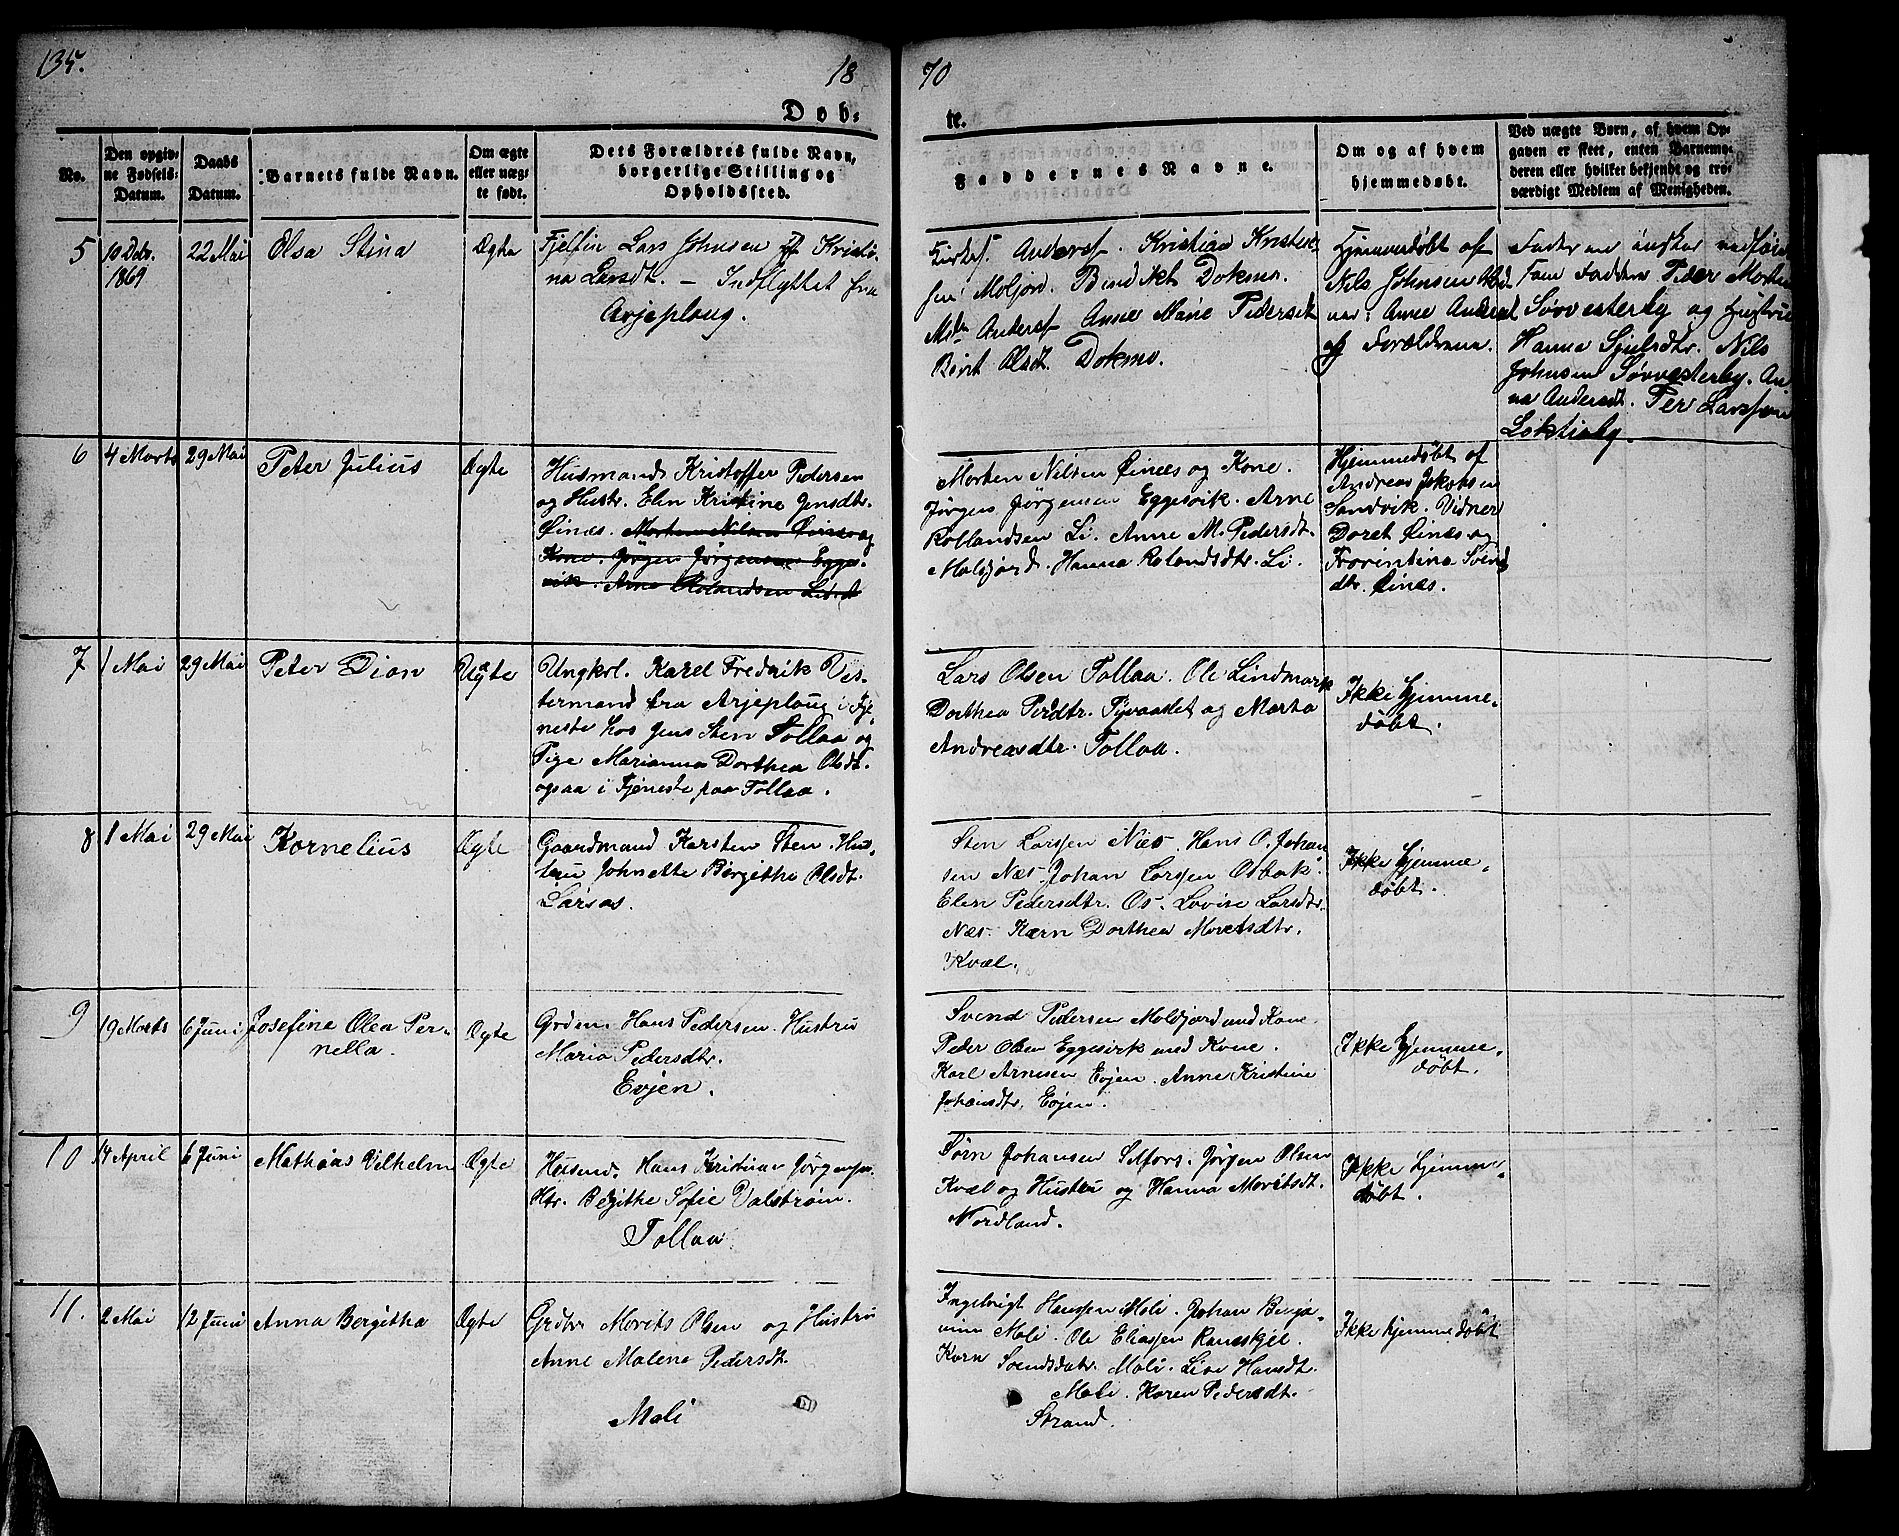 135.
18
70
Døb-
te.
No.
Den opgiv-
ne Fødsels-
Datum.
Daabs
Datum.
Barnets fulde Navn.
Om ægte
eller uæg-
te født.
Dets Forældres fulde Navn,
borgerlige Stilling og
Opholdssted.
Faddernes Navne.
Om og af hvem
hjemmedøbt.
Ved uægte Børn, af hvem Op-
gaven er skeet, enten Barnemo-
deren eller hvilket bekjendt og tro-
værdigt Medlem af Menigheden.
5
10 Dcbr.
1869
22 Mai
Elsa Stina
Ægte
Fjelfin Lars Johnsen & Kristi-
na Larsdt. - Indflyttet fra
Arjeploug.
Andersf. Kristian Kristen-
sen Moljord. Bendikt Dokmo.
Andersf Anne Marie Pedersdt
Berit Olsdt. Dokmo.
Hjemmedøbt af
Nils Johnsen Vid
ner: Anne Andersdt
og Forældrene.
Faderen ønsker
som Faddere Peder Morten
Sørvesterby og Hustru
Hanna Sjulsdtr. Nils
Johnsen Sørvesterby. An-
na Andersdt. Per Larssen
Loktiaby.
6
4 Marts
29 Mai
Peter Julius
Ægte
Husmand Kristoffer Pedersen
og Hustr. Elen Kristine Jensdtr.
Øinæs. Morten Nilsen Øinæs og
Kone. Jørgen Jørgensen Egges-
vik. Arne Rolandsen Li
Morten Nilsen Øinæs og Kone.
Jørgen Jørgensen Eggesvik. Arne
Rollandsen Li. Anne M. Pedersdt.
Moldjord. Hanna Rolandsdtr. Li.
Hjemmedøbt af
Andreas Jakobsen
Sandvik. Vidner
Doret Øinæs og
Frorintina Svend
dtr. Øinæs.
7
1 Mai
29 Mai
Peter Dion
Uægte
Ungkrl. Karel Fredrik Ves-
termand fra Arjeploug i Tje-
neste hos Jens Sten Tollaa og
Pige Marianna Dorthea Olsdt.
ogsaa i Tjeneste paa Tollaa.
Lars Olsen Tollaa. Ole Lindmark
Dorthea Perdtr. Pyvaaslet og Marta
Andreasdtr. Tollaa.
Ikke hjemme-
døbt.
8
1 Mai
29 Mai
Kornelius
Ægte
Gaardmand Karsten Sten. Hus-
tru Johnette Bergitha Olsdt.
Larsos.
Sten Larssen Næs. Hans O. Johan
sen Næs. Johan Larssen Osbak.
Elen Pedersdtr. Os. Lovise Larsdtr.
Næs. Karn Dorthea Moretsdtr.
Kvæl.
Ikke hjemme-
døbt.
9
19 Marts
6 Juni
Josefine Olea Per-
nella.
Ægte
Grdm. Hans Pedersen. Hustru
Maria Pedersdtr.
Evjen.
Svend Pedersen Moldjord med Kone.
Peder Olsen Eggesvik med Kone.
Karl Arnesen Evjen. Anne Kristine
Johansdtr. Evjen.
Ikke hjemme-
døbt.
10
14 April
6 Juni
Mathias Vilhelm
Ægte
Husmd. Hans Kristian Jørgensen.
Htr. Bergithe Sofie Valstrøm.
Tollaa
Sørn Johansen Selfors. Jørgen Olsen
Kvæl og Hustru og Hanna Moretsdt.
Nordland.
Ikke hjemme-
døbt.
11.
2 Mai
12 Juni
Anna Bergitha
Ægte
Grdbr Morets Olsen og Hustru
Anne Malena Pedersdt.
Moli
Ingebrigt Hanssen Moli. Johan Benja-
min Moli. Ole Eliassen Raneskjel.
Karn Svendsdatr. Moli. Lise Hansdt.
Moli. Karen Pedersdt.
Strand.
Ikke hjemmedøbt